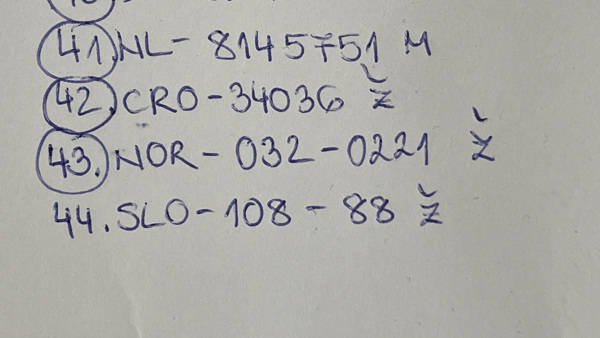 41. NL- 8145751 M
42. CRO-34036 Ž
43. NOR- 032-0221 Ž
44. SLO-108-88 Ž